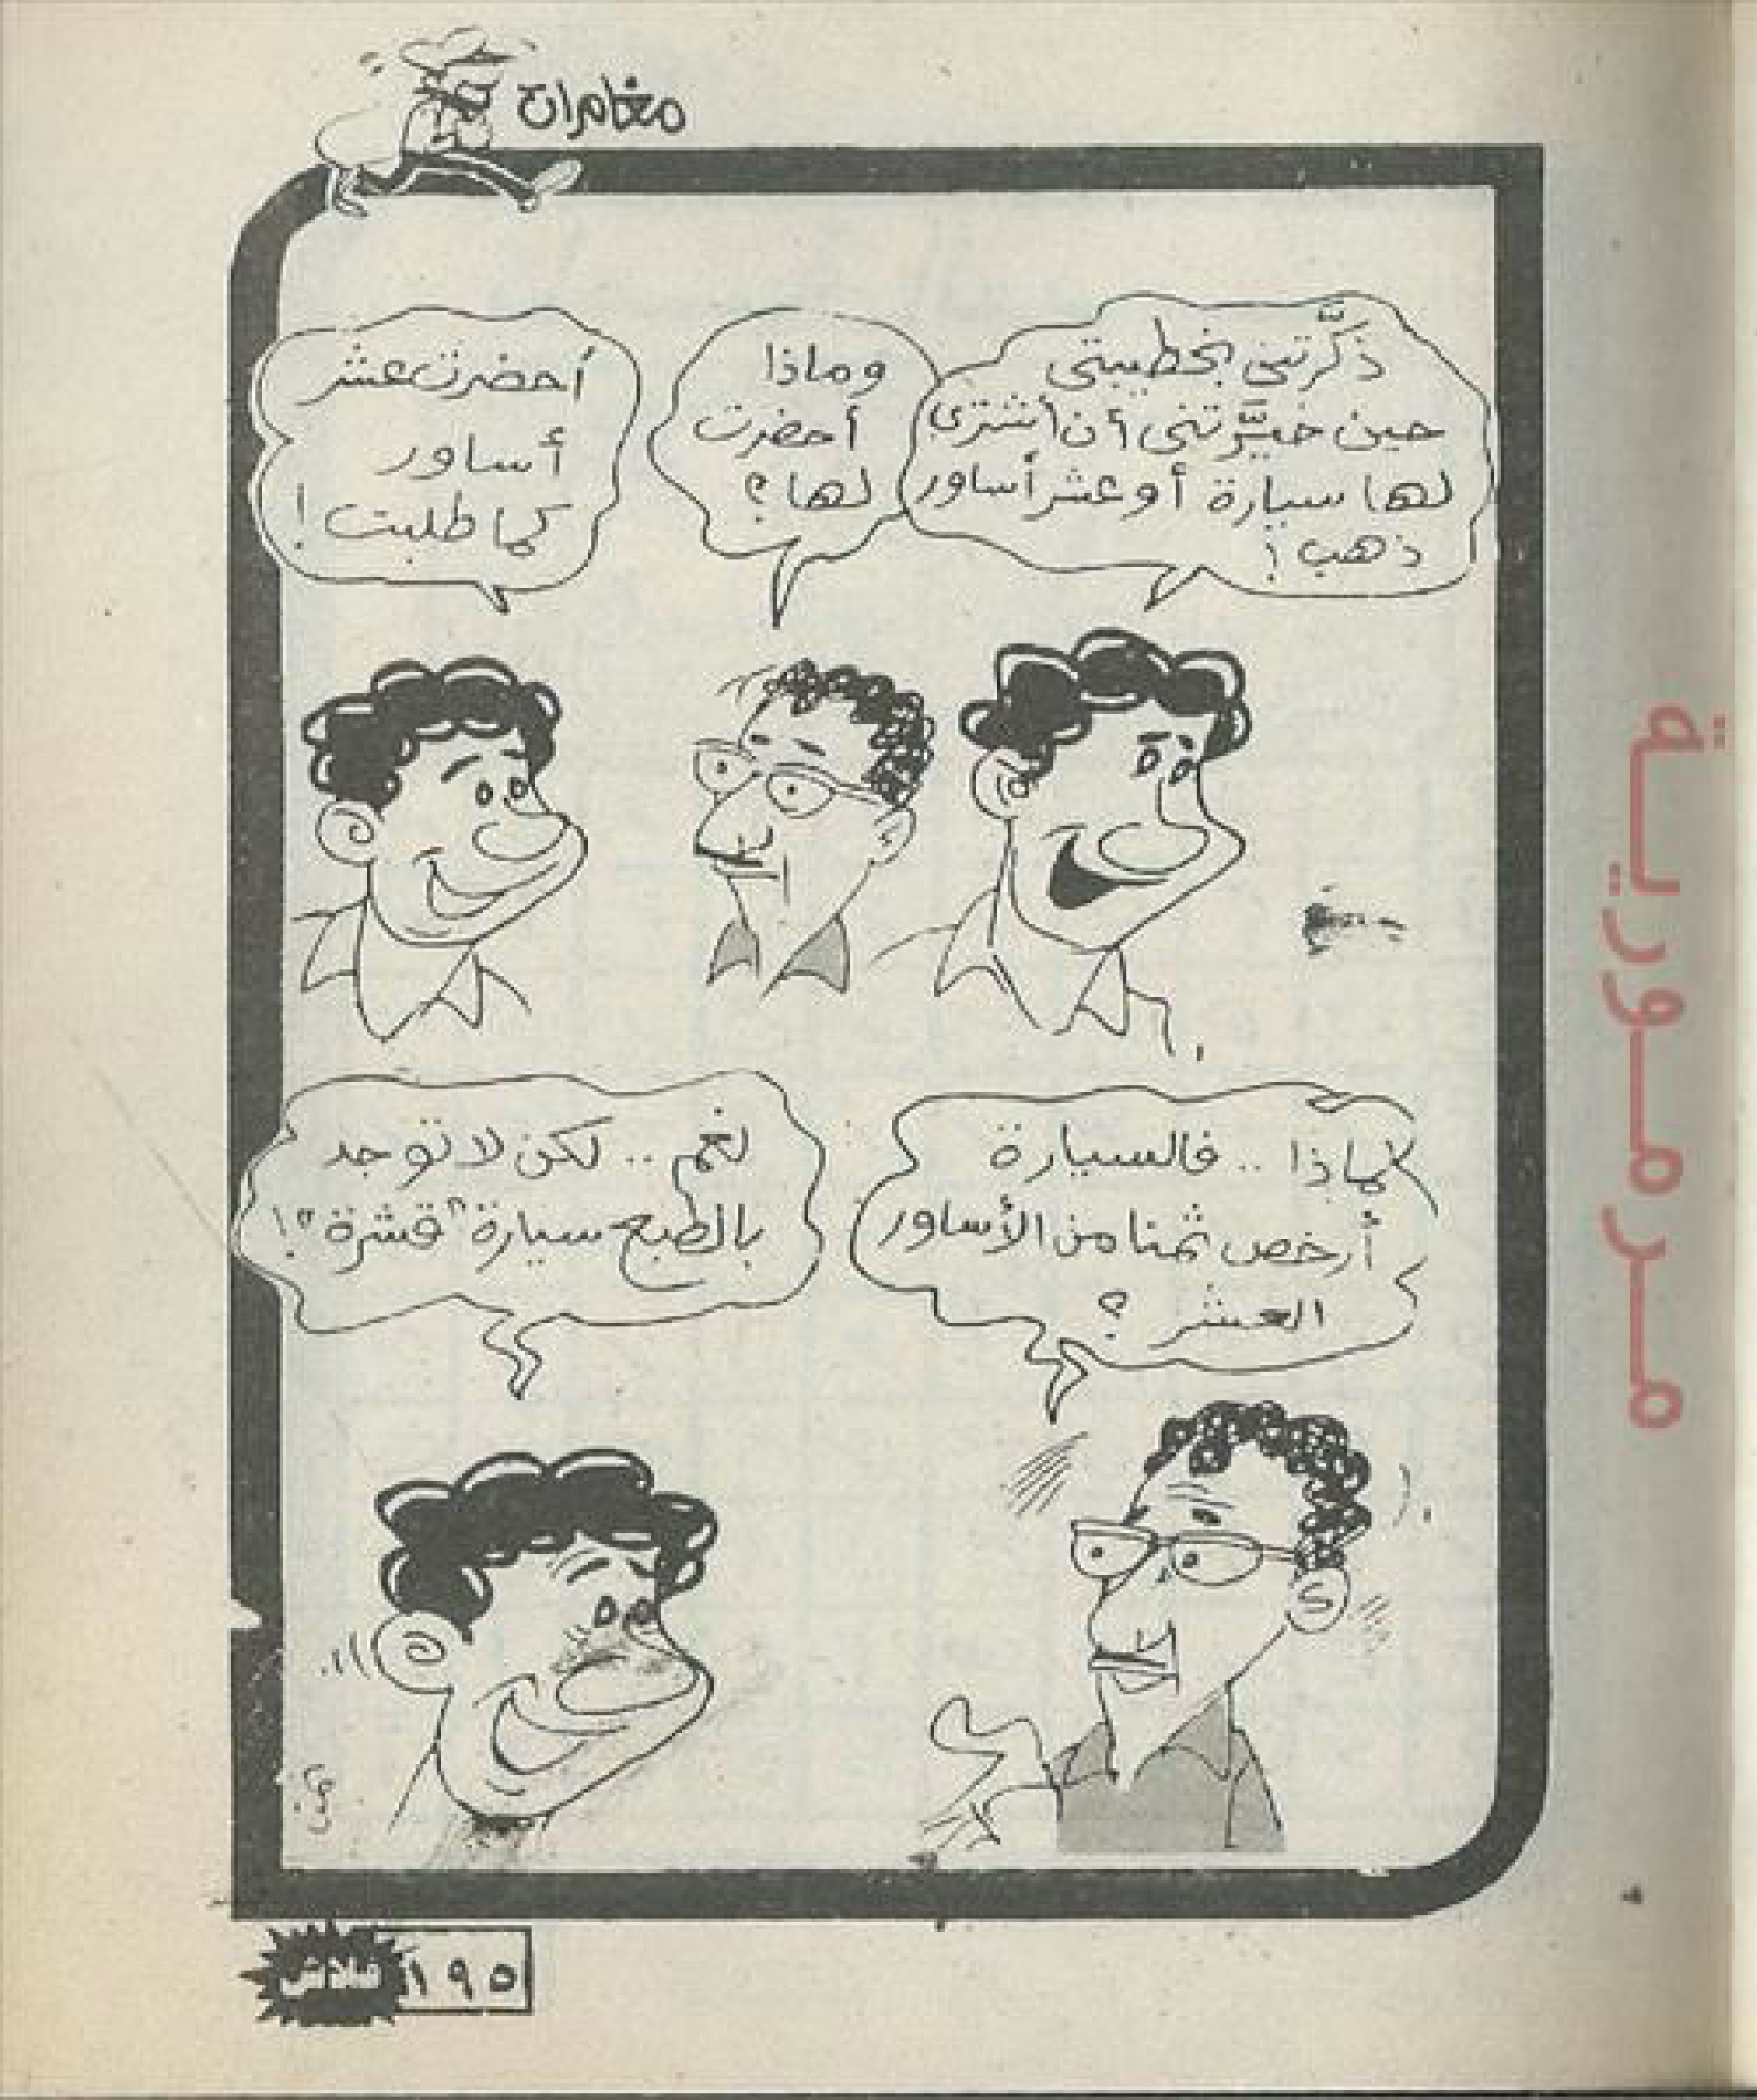 مغامرات
ذكَّرتنى بخطيبتى
حين خيَّرتنى أن أشترى
لها سيارة أو عشر أساور
ذهب !
وماذا
أحضرت
لها ؟
أحضرت عشر
أساور
كما طلبت !
لماذا .. فالسيارة
أرخص ثمنا من الأساور
العشر ؟
نعم .. لكن لا توجد
بالطبع سيارة "قشرة" !
١٩٥
فلاش
مرمورية